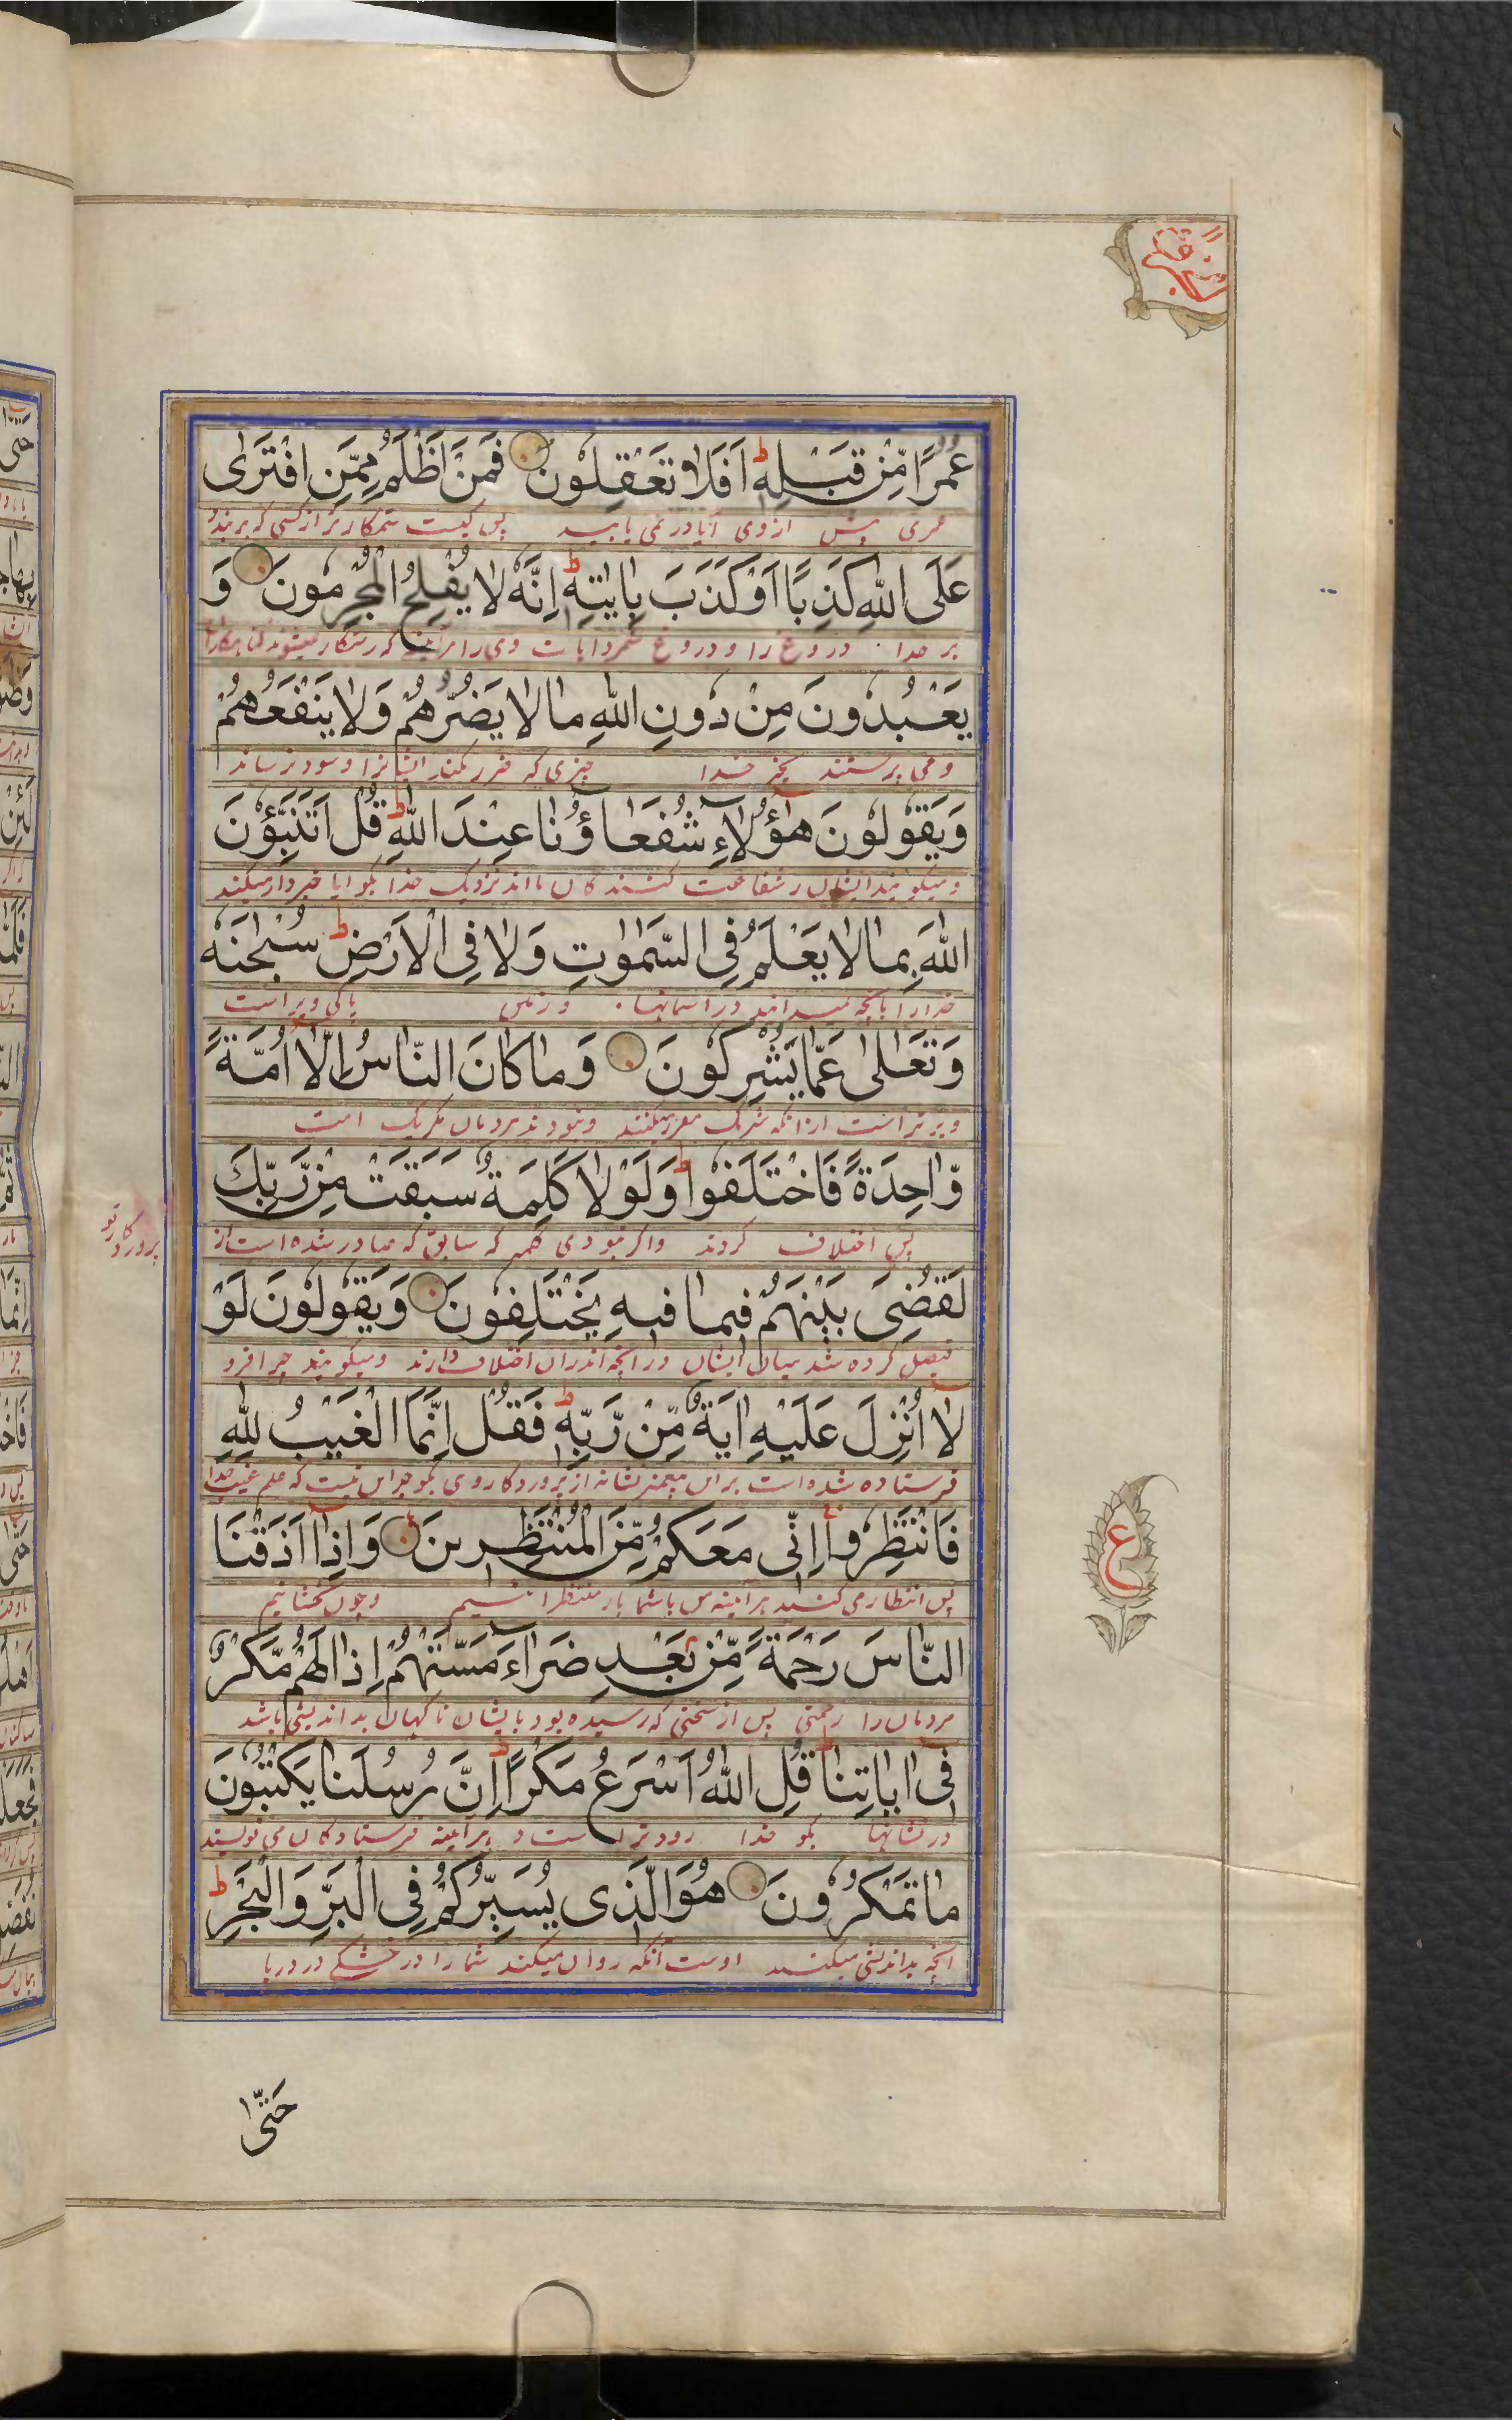 عُمُرًا مِّنْ قَبْلِهٖ ط اَفَلَا تَعْقِلُوْنَ فَمَنْ اَظْلَمُ مِمَّنِ افْتَرٰى
عمری پیش ازوی آیا در نمی یابید پس کیست ستمکار تر از کسی که بربندد
عَلَى اللّٰهِ كَذِبًا اَوْ كَذَّبَ بِاٰيٰتِهٖ ط اِنَّهٗ لَا يُفْلِحُ الْمُجْرِمُوْنَ وَ
بر خدا دروغ را و دروغ شمرد ایات وی را هر آیینه که رستگار نمیشوند گناهکاران
يَعْبُدُوْنَ مِنْ دُوْنِ اللّٰهِ مَا لَا يَضُرُّهُمْ وَلَا يَنْفَعُهُمْ
و می پرستند بجز خدا چیزی که ضرر نکند ایشانرا و سود نرساند
وَيَقُوْلُوْنَ هٰٓؤُلَاۤءِ شُفَعَاۤؤُنَا عِنْدَ اللّٰهِ ط قُلْ اَتُنَبِّـُٔوْنَ
و میگویند اینان شفاعت کنندگان مااند نزدیک خدا بگو ایا خبردار میکنید
اللّٰهَ بِمَا لَا يَعْلَمُ فِى السَّمٰوٰتِ وَلَا فِى الْاَرْضِ ط سُبْحٰنَهٗ
خدارا بانچه نمیداند در اسمانها و زمین پاکی ویراست
وَتَعَالٰى عَمَّا يُشْرِكُوْنَ وَمَا كَانَ النَّاسُ اِلَّا اُمَّةً
و برتر است ازانکه شرک مقرر میکنند و نبودند مردمان مگر یک امت
وَّاحِدَةً فَاخْتَلَفُوْا ط وَلَوْلَا كَلِمَةٌ سَبَقَتْ مِنْ رَّبِّكَ
پس اختلاف کردند و اگر نبودی کلمه که سابق صادر شده است از
پروردگار تو
لَقُضِىَ بَيْنَهُمْ فِيْمَا فِيْهِ يَخْتَلِفُوْنَ وَيَقُوْلُوْنَ لَوْ
فیصل کرده شد میان ایشان در انچه اندران اختلاف دارند و میگویند چرا فرو
لَاۤ اُنْزِلَ عَلَيْهِ اٰيَةٌ مِّنْ رَّبِّهٖ ط فَقُلْ اِنَّمَا الْغَيْبُ لِلّٰهِ
فرستاده شده است براین پیغمبر نشانه از پروردگار وی بگو جز این نیست که علم غیب خدا
فَانْتَظِرُوْا اِنِّىْ مَعَكُمْ مِّنَ الْمُنْتَظِرِيْنَ وَاِذَاۤ اَذَقْنَا
پس انتظار می کنید هر آیینه من باشما از منتظرانیم و چون بچشانیم
النَّاسَ رَحْمَةً مِّنْ بَعْدِ ضَرَّاۤءَ مَسَّتْهُمْ اِذَا لَهُمْ مَّكْرٌ
مردمان را رحمتی پس از سختی که رسیده بود بایشان ناگهان بد اندیشی باشد
فِىْ اٰيَاتِنَا ط قُلِ اللّٰهُ اَسْرَعُ مَكْرًا ط اِنَّ رُسُلَنَا يَكْتُبُوْنَ
در نشانها بگو خدا زود تر است هر آیینه فرستادگان می نویسند
مَا تَمْكُرُوْنَ هُوَ الَّذِىْ يُسَيِّرُكُمْ فِى الْبَرِّ وَالْبَحْرِ ط
انچه بداندیشی میکنید اوست آنکه روان میکند شما را در خشکی و در دریا
ع
حَتّٰى